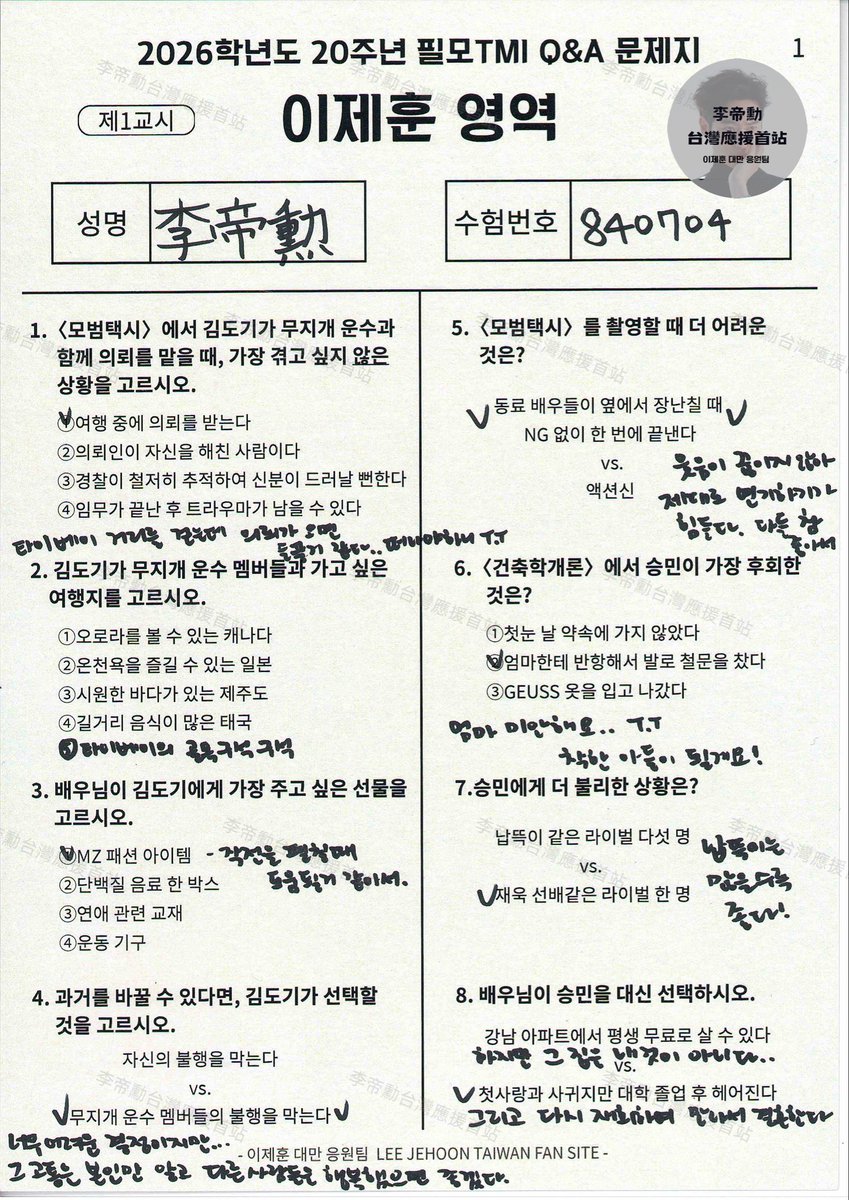 2026학년도 20주년 필모TMI Q&A 문제지
1
제1교시
이제훈 영역
李帝勳
台灣應援首站
이제훈 대만 응원팀
성명
李帝勳
수험번호
840704
1. <모범택시> 에서 김도기가 무지개 운수과
함께 의뢰를 맡을 때, 가장 겪고 싶지 않은
상황을 고르시오.
①여행 중에 의뢰를 받는다
②의뢰인이 자신을 해친 사람이다
③경찰이 철저히 추적하여 신분이 드러날 뻔한다
④임무가 끝난 후 트라우마가 남을 수 있다
타이베이 거리를 걷는데 의뢰가 오면
슬플거 같다.. 떠나야하니 T.T
2. 김도기가 무지개 운수 멤버들과 가고 싶은
여행지를 고르시오.
①오로라를 볼 수 있는 캐나다
②온천욕을 즐길 수 있는 일본
③시원한 바다가 있는 제주도
④길거리 음식이 많은 태국
⑤타이베이의 골목구석구석
3. 배우님이 김도기에게 가장 주고 싶은 선물을
고르시오.
①MZ 패션 아이템 - 작전을 펼칠때
도움될거 같아서.
②단백질 음료 한 박스
③연애 관련 교재
④운동 기구
4. 과거를 바꿀 수 있다면, 김도기가 선택할
것을 고르시오.
자신의 불행을 막는다
vs.
무지개 운수 멤버들의 불행을 막는다
너무 어려운 결정이지만...
그 고통은 본인만 알고 다른사람들은 행복했으면 좋겠다.
5. <모범택시> 를 촬영할 때 더 어려운
것은?
동료 배우들이 옆에서 장난칠 때
NG 없이 한 번에 끝낸다
vs.
액션신
웃음이 끊이지 않아
제대로 연기하기가
힘들다. 다들 참
좋아서
6. <건축학개론> 에서 승민이 가장 후회한
것은?
①첫눈 날 약속에 가지 않았다
②엄마한테 반항해서 발로 철문을 찼다
③GEUSS 옷을 입고 나갔다
엄마 미안해요.. T.T
착한 아들이 될게요!
7.승민에게 더 불리한 상황은?
납뜩이 같은 라이벌 다섯 명
vs.
재욱 선배같은 라이벌 한 명
납뜩이는
많을수록
좋다!
8. 배우님이 승민을 대신 선택하시오.
강남 아파트에서 평생 무료로 살 수 있다
하지만 그 집은 내것이 아니다..
vs.
첫사랑과 사귀지만 대학 졸업 후 헤어진다
그리고 다시 재회하여 만나서 결혼한다
- 이제훈 대만 응원팀 LEE JEHOON TAIWAN FAN SITE -